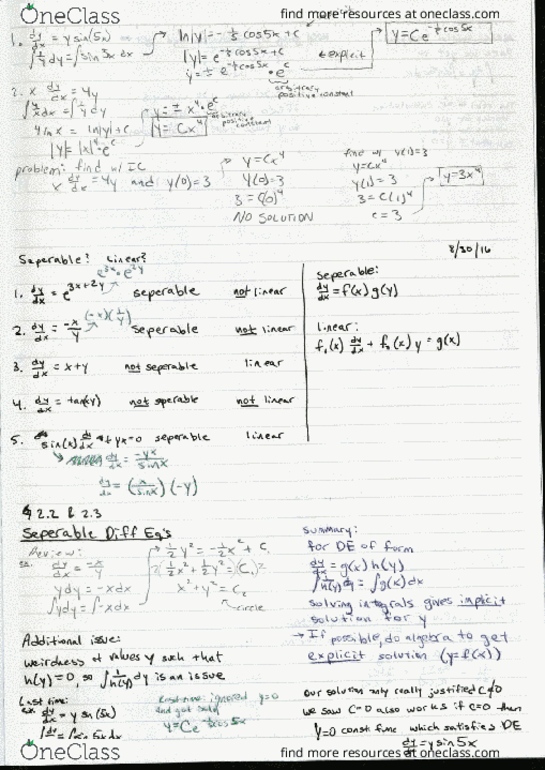 OneClass
find more resources at oneclass.com
1. dy/dx = y sin(5x)
∫ 1/y dy = ∫ sin 5x dx
ln|y| = -1/5 cos5x + C
|y| = e^(-1/5 cos5x + C)
y = ± e^(-1/5 cos5x) • e^c
arbitrary
positive constant
← explicit
y = Ce^(-1/5 cos5x)
2. x dy/dx = 4y
∫ 4/x dx = ∫ 1/y dy
4 ln x = ln|y| + C
|y| = |x|^4 • e^c
y = ± x^4 • e^c
arbitrary
positive
constant
y = Cx^4
problem: find w/ IC
x dy/dx = 4y and y(0) = 3
y = Cx^4
y(0) = 3
3 = C(0)^4
NO SOLUTION
find w/ y(1) = 3
y = Cx^4
y(1) = 3
3 = C(1)^4
C = 3
y = 3x^4
8/30/16
Seperable? Linear?
e^3x • e^2y
1. dy/dx = e^(3x+2y) seperable not linear
2. dy/dx = -x/y (-x)(1/y) seperable not linear
3. dy/dx = x+y not seperable linear
4. dy/dx = tan(xy) not seperable not linear
5. sin(x) dy/dx + yx = 0 seperable linear
dy/dx = -yx/sinx
dy/dx = (x/sinx)(-y)
seperable:
dy/dx = f(x) g(y)
linear:
f₁(x) dy/dx + f₀(x) y = g(x)
§ 2.2 & 2.3
Seperable Diff Eq's
Review:
ex. dy/dx = -x/y
y dy = -x dx
∫ y dy = ∫ -x dx
1/2 y² = -1/2 x² + C₁
2(1/2 x² + 1/2 y²) = (C₁)2
x² + y² = C₂
circle
summary:
for DE of form
dy/dx = g(x) h(y)
∫ 1/h(y) dy = ∫ g(x) dx
solving integrals gives implicit
solution for y
→ If possible, do algebra to get
explicit solution (y = f(x))
Additional issue:
weirdness at values y such that
h(y) = 0, so ∫ 1/h(y) dy is an issue
Last time:
ex. dy/dx = y sin(5x)
ignored y=0
and got
y = Ce^(-1/5 cos5x)
our solution only really justified C≠0
we saw C=0 also works if C=0 then
y=0 const func which satisfies DE
dy/dx = y sin 5x
OneClass
find more resources at oneclass.com